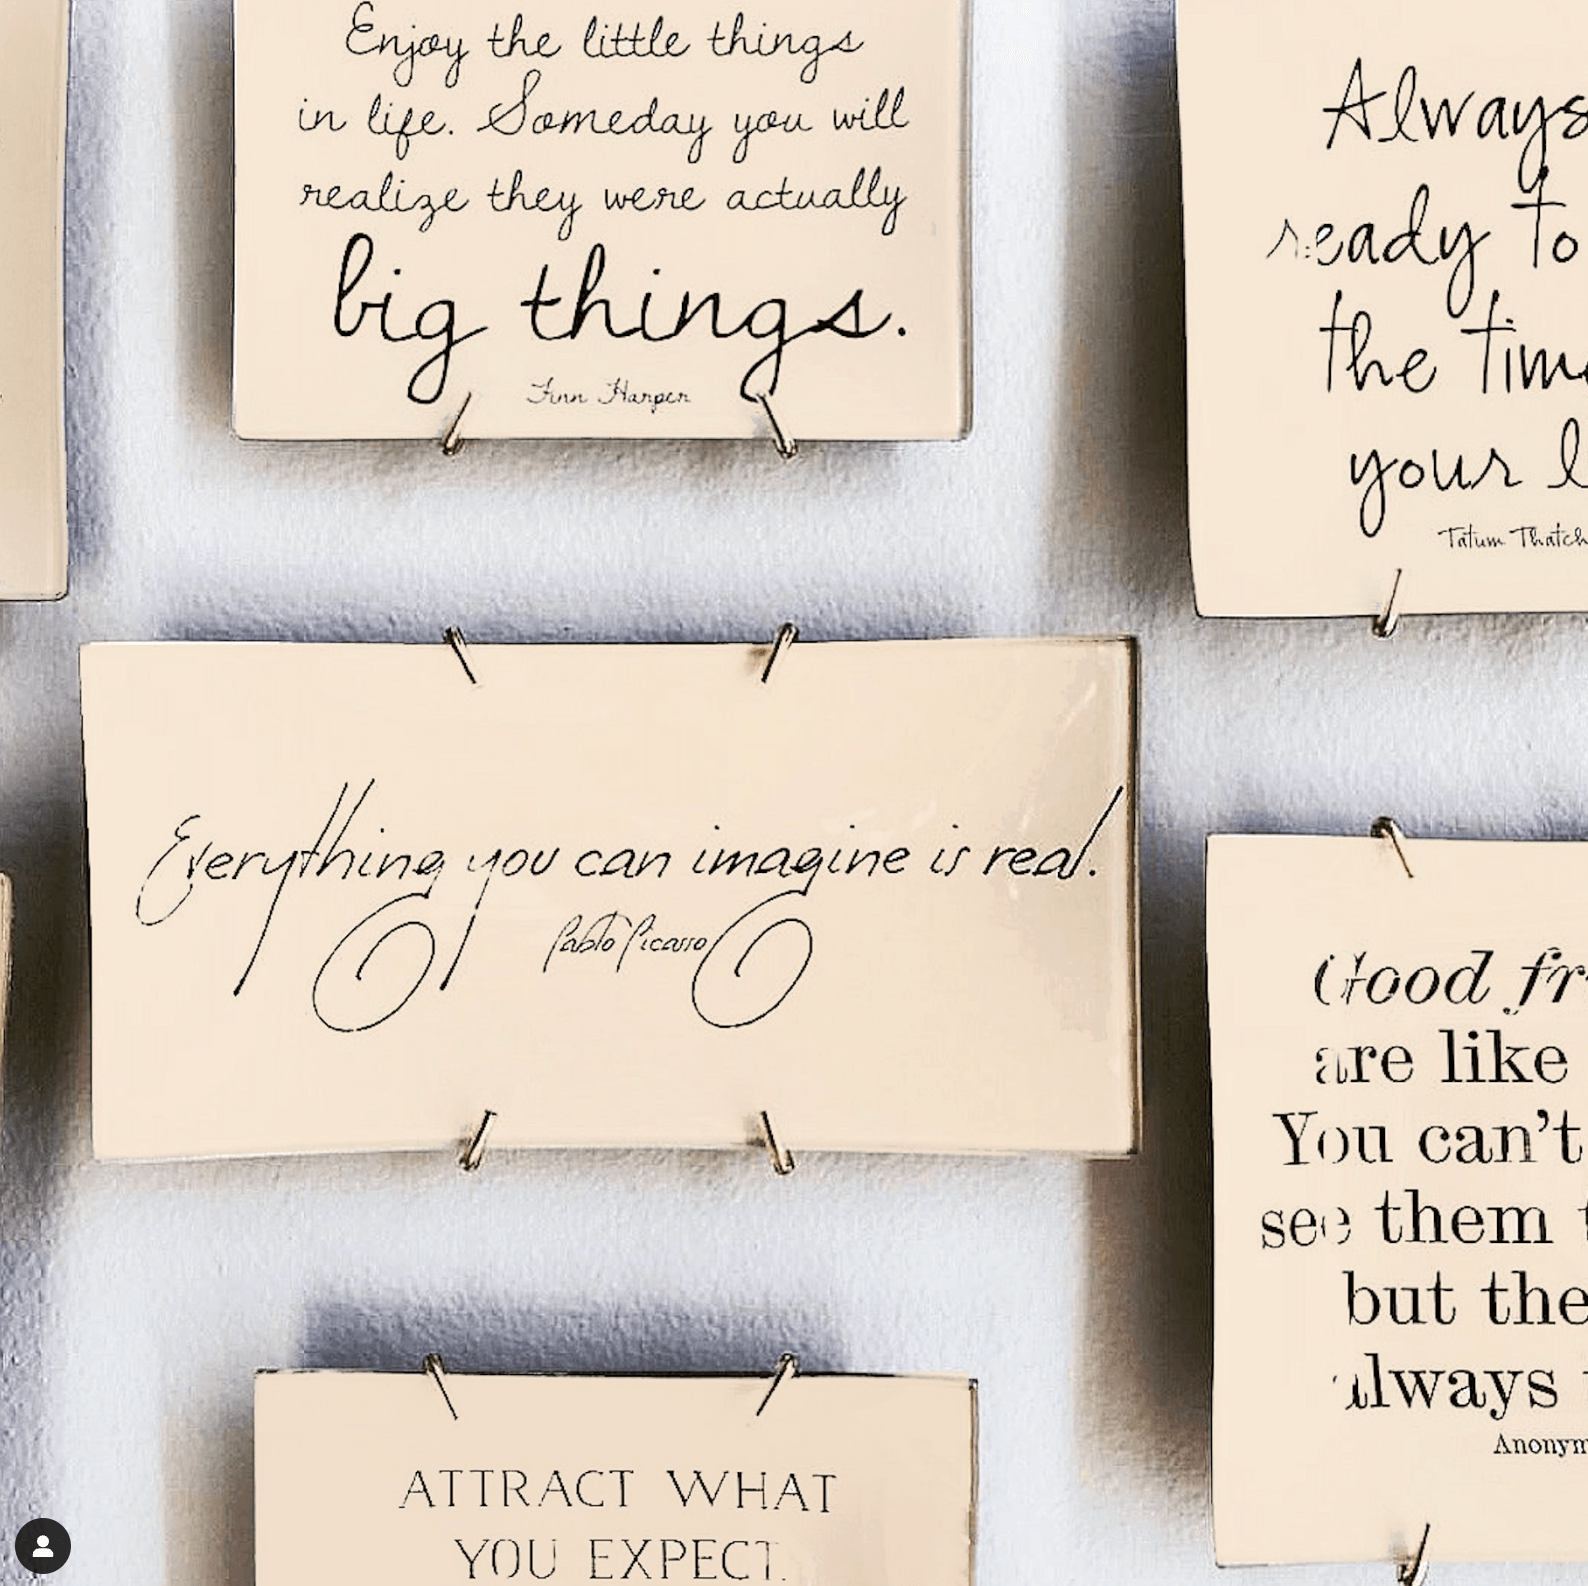 Enjoy the little things
in life. Someday you will
realize they were actually
big things.
Finn Harper
Always
ready to
the
your
Tatum
Everything you can imagine is real.
Pablo Picasso
Good
are like
You can't
see them
but
always
ATTRACT WHAT
YOU EXPECT.